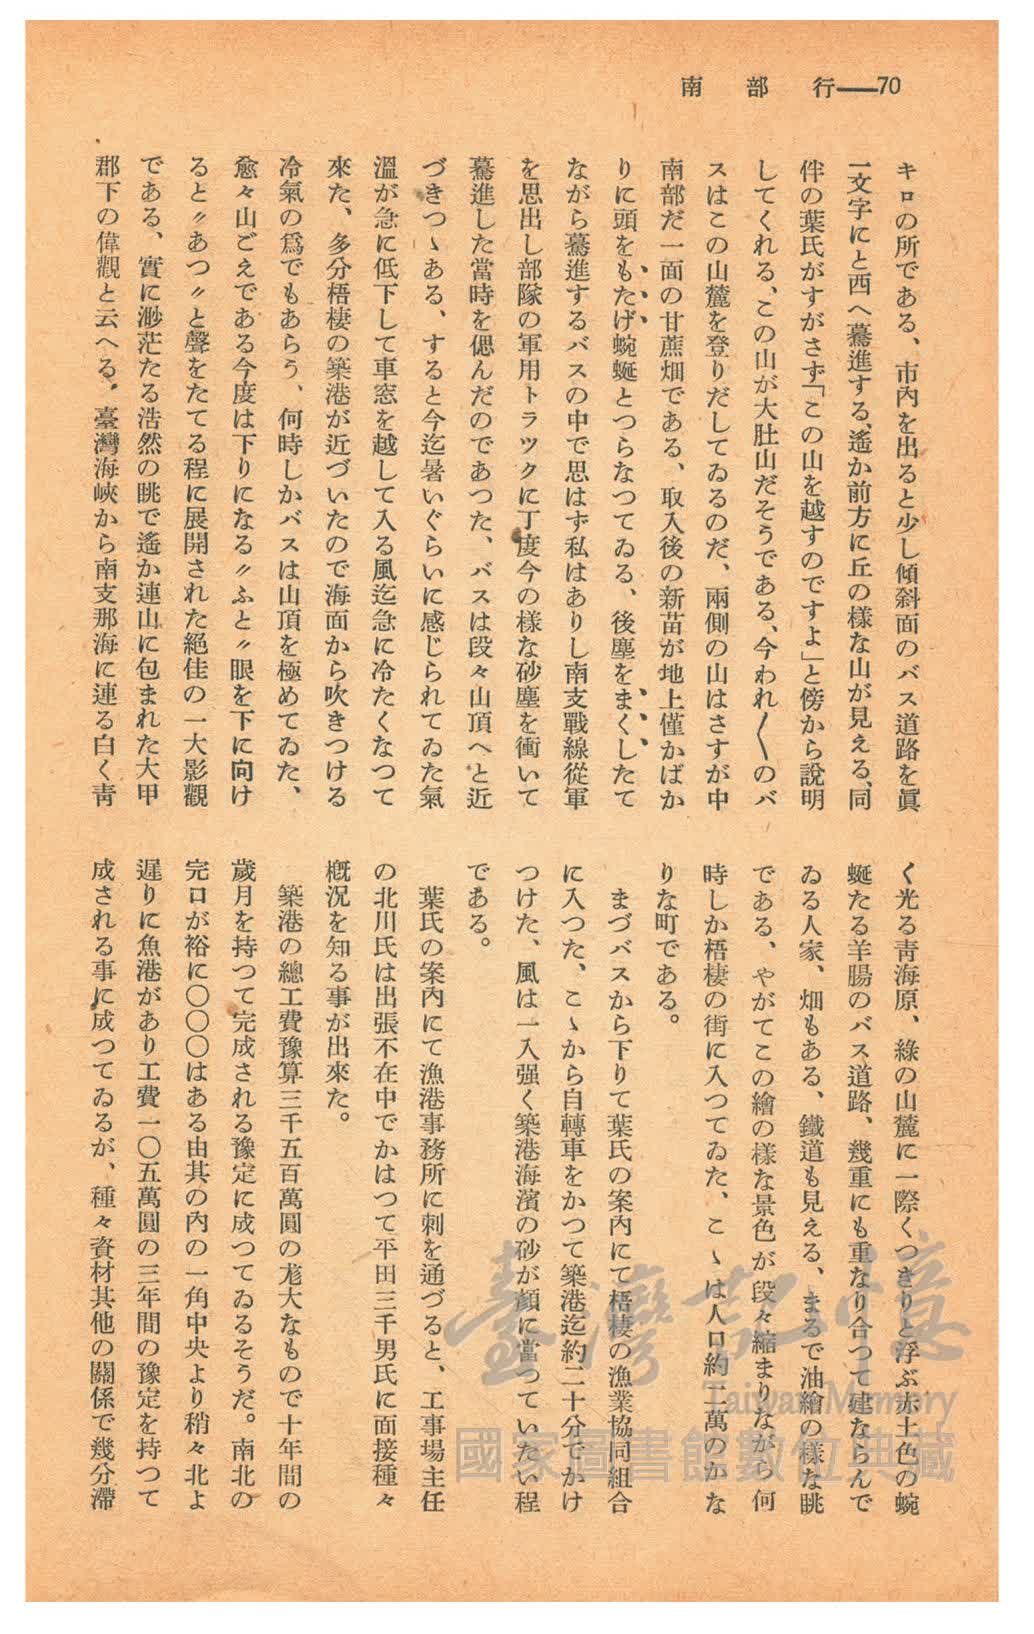 南部行――70
キロの所である、市內を出ると少し傾斜面のバス道路を眞
一文字にと西へ驀進する、遙か前方に丘の樣な山が見える、同
伴の葉氏がすがさず「この山を越すのですよ」と傍から說明
してくれる、この山が大肚山だそうである、今われ〱のバ
スはこの山麓を登りだしてゐるのだ、兩側の山はさすが中
南部だ一面の甘蔗畑である、取入後の新苗が地上僅かばか
りに頭をもたげ蜿蜒とつらなつてゐる、後塵をまくしたて
ながら驀進するバスの中で思はず私はありし南支戰線從軍
を思出し部隊の軍用トラツクに丁度今の樣な砂塵を衝いて
驀進した當時を偲んだのであつた、バスは段々山頂へと近
づきつゝある、すると今迄暑いぐらいに感じられてゐた氣
溫が急に低下して車窓を越して入る風迄急に冷たくなつて
來た、多分梧棲の築港が近づいたので海面から吹きつける
冷氣の爲でもあらう、何時しかバスは山頂を極めてゐた、
愈々山ごえである今度は下りになる〃ふと〃眼を下に向け
ると〃あつ〃と聲をたてる程に展開された絕佳の一大影觀
である、實に渺茫たる浩然の眺で遙か連山に包まれた大甲
郡下の偉觀と云へる。臺灣海峽から南支那海に連る白く靑
く光る靑海原、綠の山麓に一際くつきりと浮ぶ赤土色の蜿
蜒たる羊腸のバス道路、幾重にも重なり合つて建ならんで
ゐる人家、畑もある、鐵道も見える、まるで油繪の樣な眺
である、やがてこの繪の樣な景色が段々縮まりながら何
時しか梧棲の街に入つてゐた、こゝは人口約二萬のかな
りな町である。
まづバスから下りて葉氏の案內にて梧棲の漁業協同組合
に入つた、こゝから自轉車をかつて築港迄約二十分でかけ
つけた、風は一入强く築港海濱の砂が顏に當つていたい程
である。
葉氏の案內にて漁港事務所に刺を通づると、工事場主任
の北川氏は出張不在中でかはつて平田三千男氏に面接種々
槪況を知る事が出來た。
築港の總工費豫算三千五百萬圓の尨大なもので十年間の
歲月を持つて完成される豫定に成つてゐるそうだ。南北の
完口が裕に〇〇〇はある由其の內の一角中央より稍々北よ
遅りに魚港があり工費一〇五萬圓の三年間の豫定を持つて
成される事に成つてゐるが、種々資材其他の關係で幾分滯
臺灣記憶
Taiwan Memory
國家圖書館數位典藏